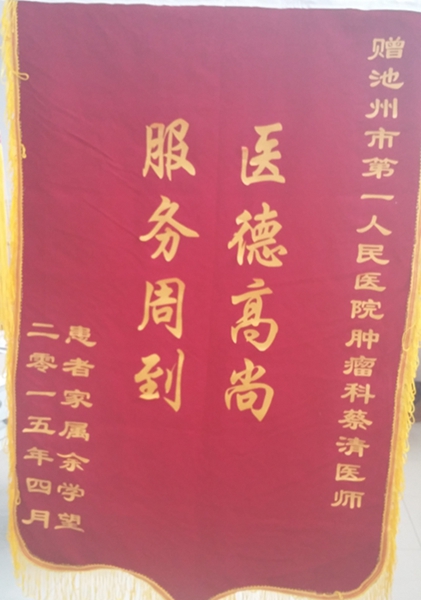 赠池州市第一人民医院肿瘤科蔡清医师
医德高尚
服务周到
患者家属余学望
二零一五年四月